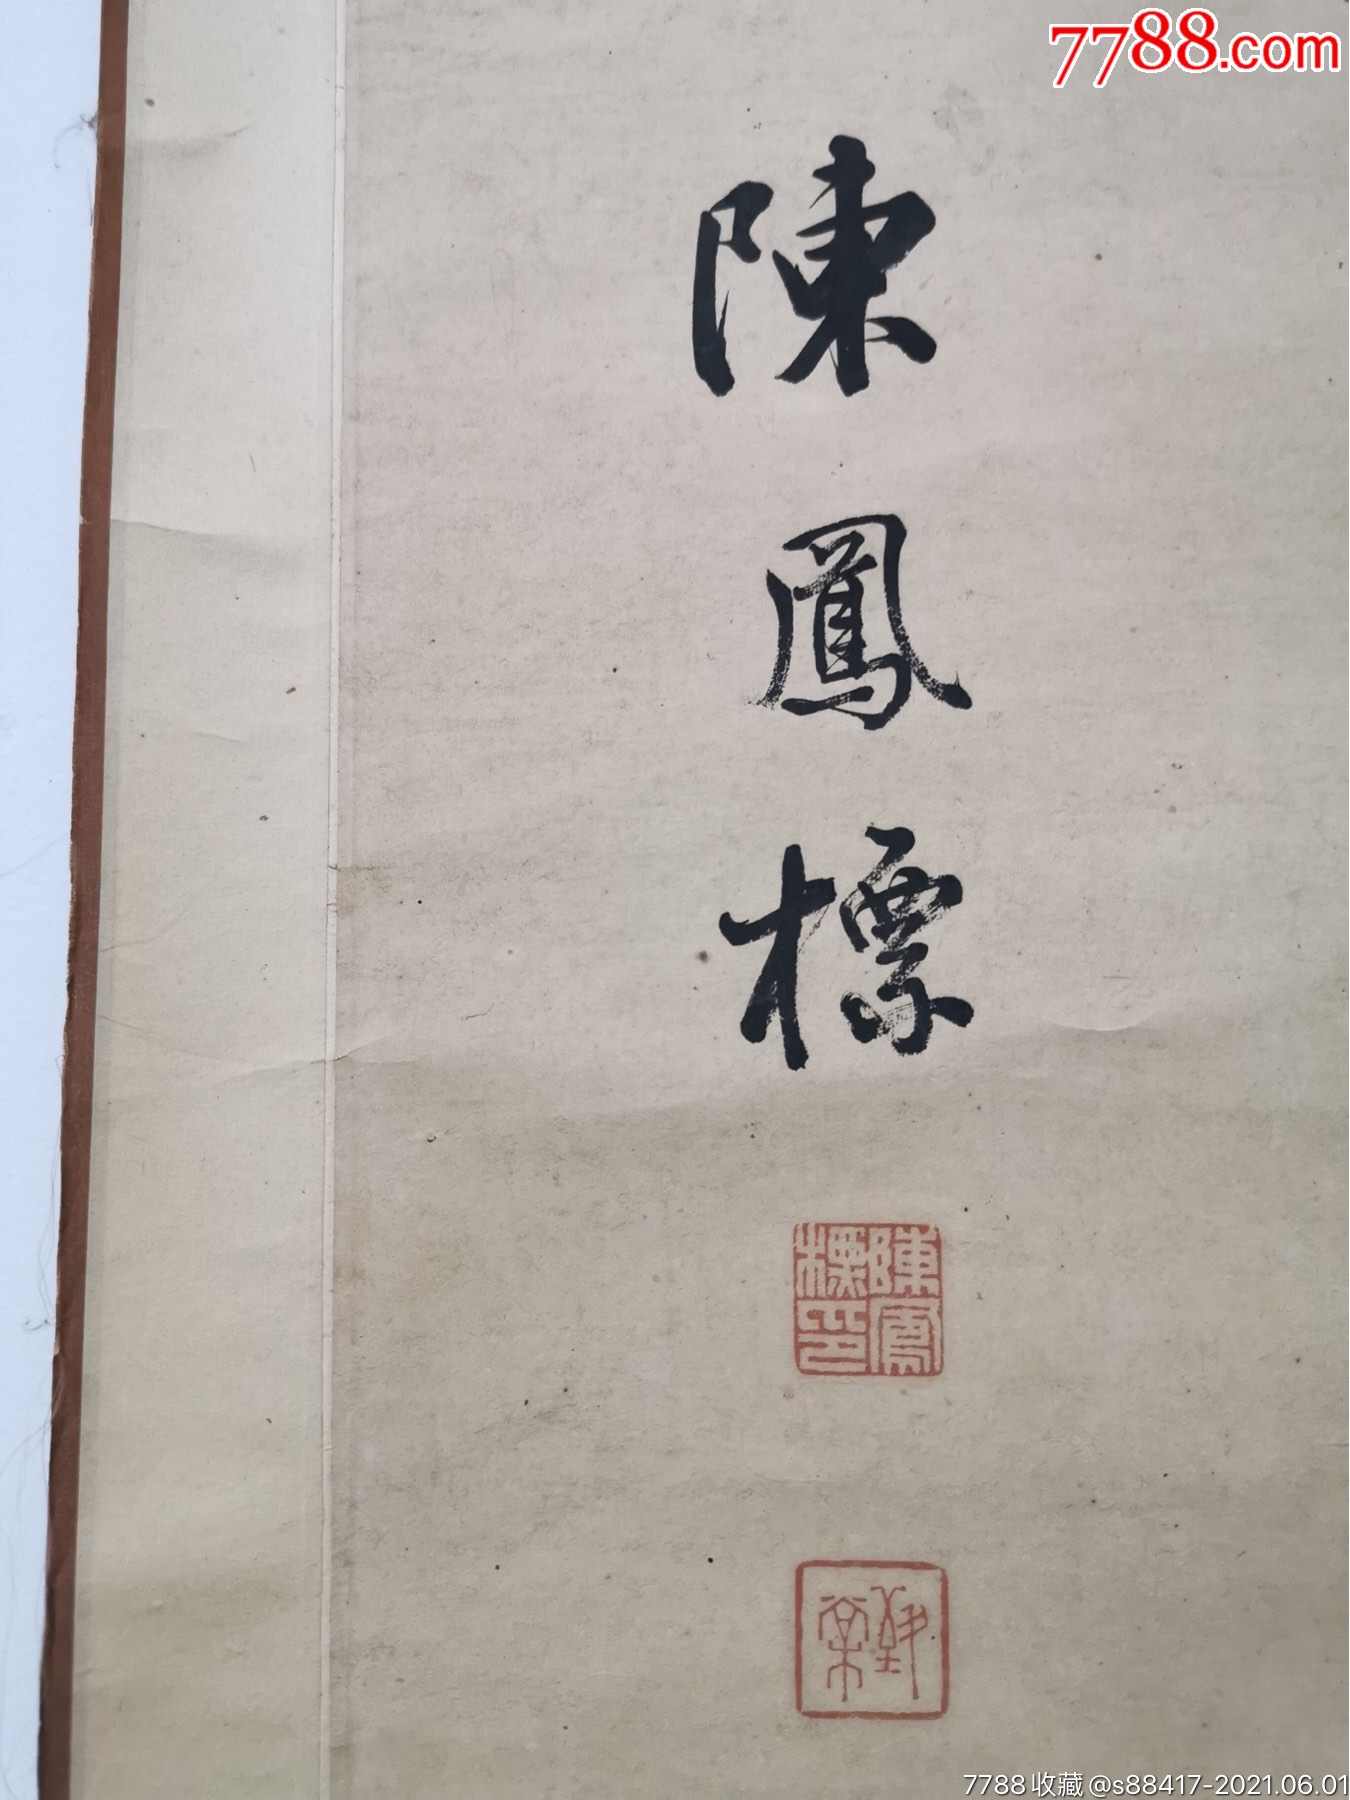 7788.com
陳鳳標
陳鳳
標印
7788收藏 @s88417-2021.06.01